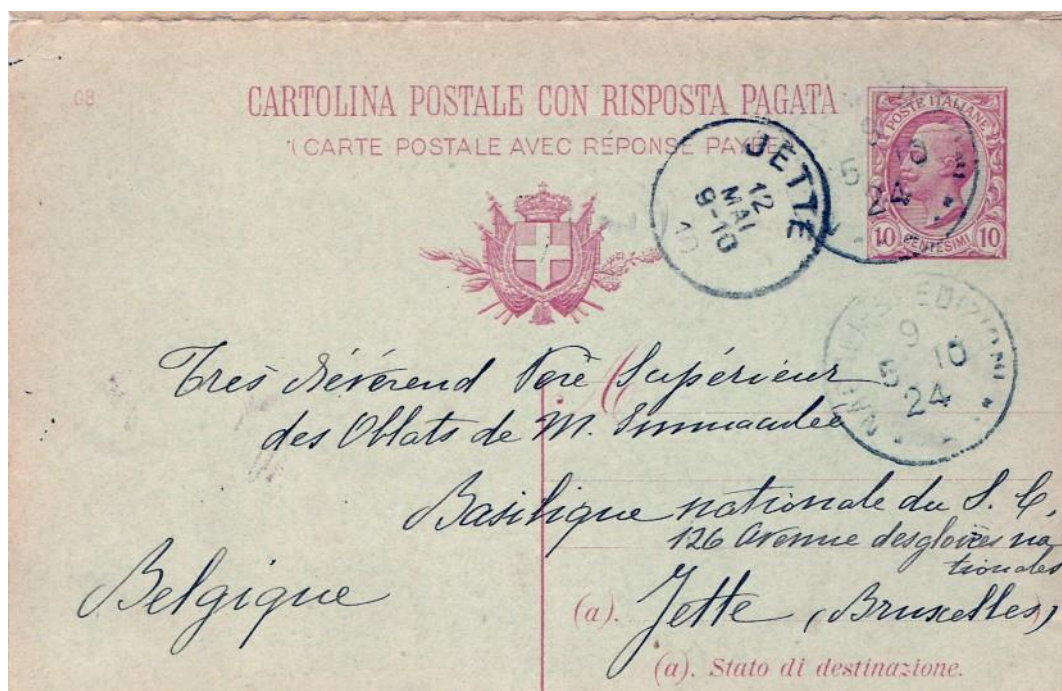 08
CARTOLINA POSTALE CON RISPOSTA PAGATA
(CARTE POSTALE AVEC RÉPONSE PAYÉE)
POSTE ITALIANE
10 CENTESIMI 10
JETTE
12
MAI
9-10
10
5 10
24
SPEDIZIONI
9
5 10
24
Très Révérend Père Supérieur
des Oblats de M. Immaculée
Basilique nationale du S. C.
126 Avenue des gloires na
tionales
Belgique
(a). Jette (Bruxelles)
(a). Stato di destinazione.